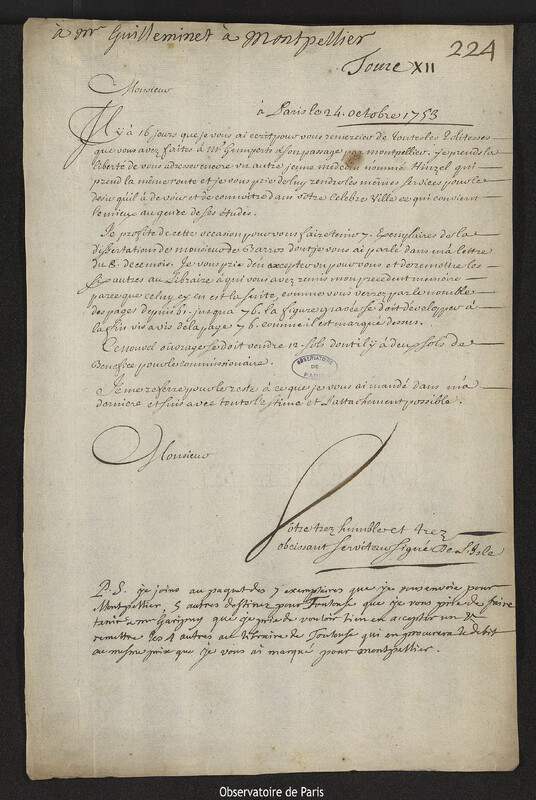 à mr Guilleminet à Montpellier
224
Tome XII
Monsieur
à Paris le 24. octobre 1753
Il y à 16 jours que je vous ai ecrit pour vous remercier de toutes les Politesses
que vous avez faites à Mr Gumports à son passage par montpellier. je prends la
liberté de vous adresser encore un autre jeune medecin nommé Hirzel qui
prend la même route et je vous prie de luy rendre les mêmes services pour le
desir qu'il à de voir et de connoitre dans votre Celebre Ville ce qui convient
le mieux au genre de ses études.
Je profite de cette occasion pour vous faire tenir 7. Exemplaires de la
dissertations de monsieur de Barros dont je vous ai parlé dans ma lettre
du 8. de ce mois. Je vous prie d'en accepter un pour vous et de remettre les
six autres au Libraire à qui vous avez remis mon precedent memoire
parce que celuy cy en est la suite, comme vous verrez par le nombre
des pages depuis 61. jusqu'a 76. la figure gravée se doit développer à
la fin vis avis de la page 76. comme il est marqué dessus.
Ce nouvel ouvrage se doit vendre 12. sols dont il y à deux sols de
Benefice pour le commissionaire.
OBSERVATOIRE
DE
PARIS
Je me refere pour le reste à ce que je vous ai mandé dans ma
derniere et suis avec toute l'estime et l'attachement possible.
Monsieur
Votre trez humble et trez
obeissant serviteur Signé De L'Isle
P.S. je joins au paquet des 7 exemplaires que je vous envoie pour
Montpellier, 5 autres destinez pour Toulouse que je vous prie de faire
tenir à mr Garipuy que je prie de vouloir bien en accepter un et
remettre les 4 autres au libraire de Toulouse qui en procurera le debit
au mesme prix que je vous ai marqué pour montpellier.
Observatoire de Paris